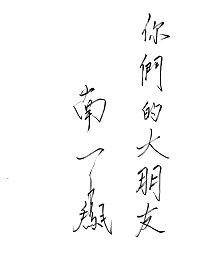 你們的大朋友
南一鵬